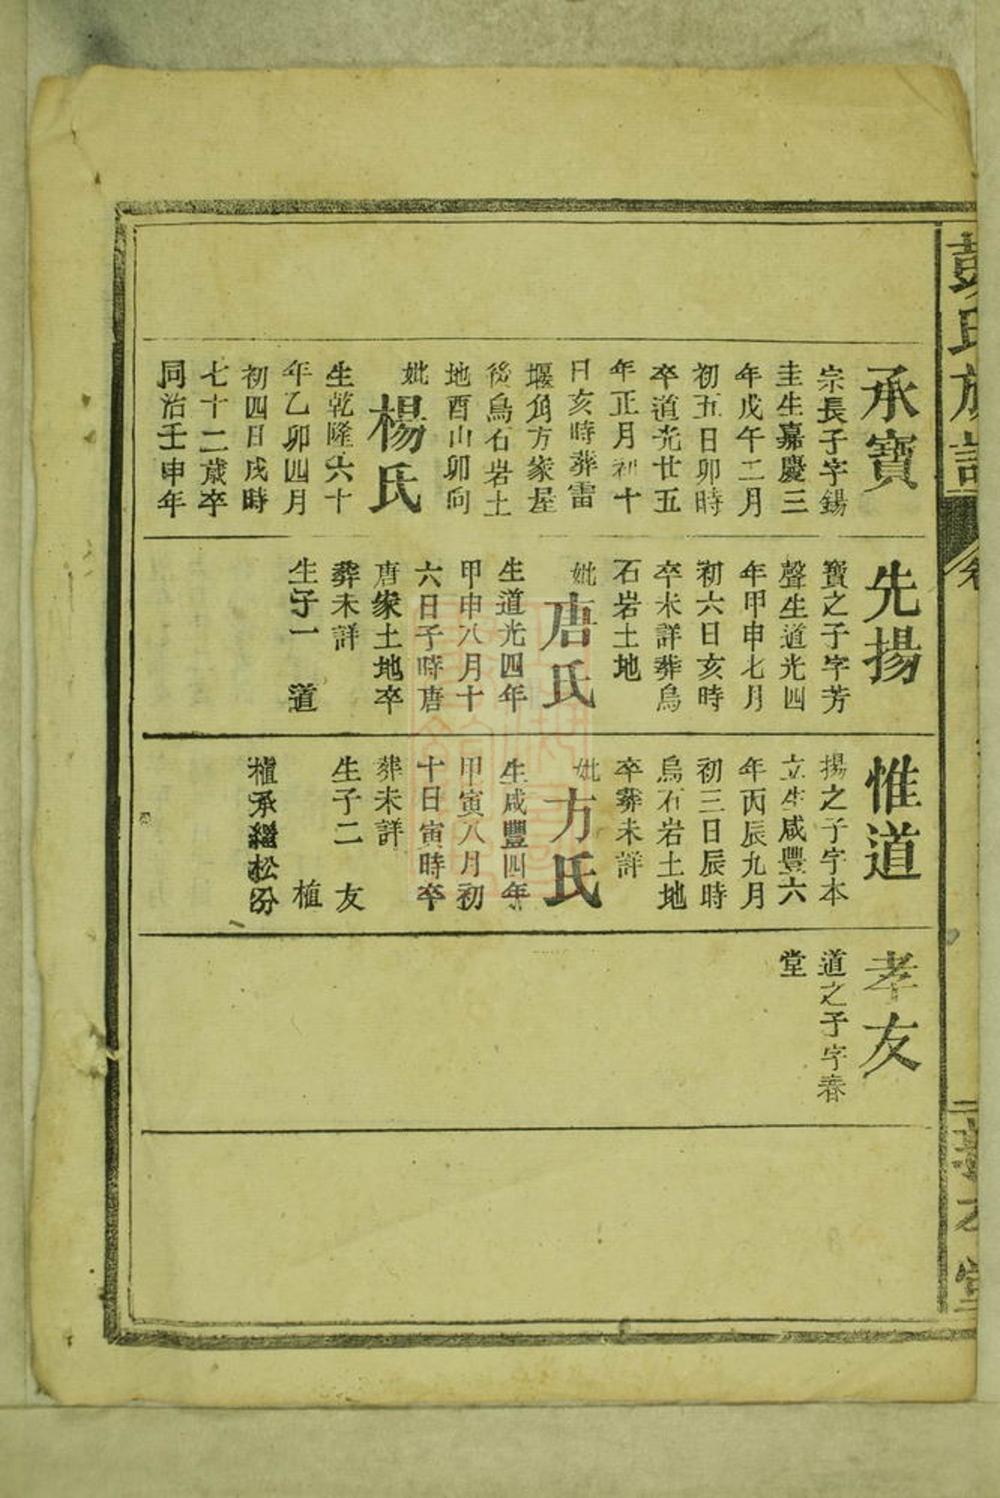 彭氏族譜
承寶
宗長子字錫
圭生嘉慶三
年戊午二月
初五日卯時
卒道光廿五
年正月初十
日亥時葬雷
堰角方家屋
後烏石岩土
地酉山卯向
妣楊氏
生乾隆六十
年乙卯四月
初四日戌時
七十二歲卒
同治壬申年
先揚
寶之子字芳
聲生道光四
年甲申七月
初六日亥時
卒未詳葬烏
石岩土地
妣唐氏
生道光四年
甲申八月十
六日子時唐
家土地卒
葬未詳
生子一 道
惟道
揚之子字本
立生咸豐六
年丙辰九月
初三日辰時
烏石岩土地
卒葬未詳
妣方氏
生咸豐四年
甲寅八月初
十日寅時卒
葬未詳
生子二 友
植
植承繼松汾
孝友
道之子字春
堂